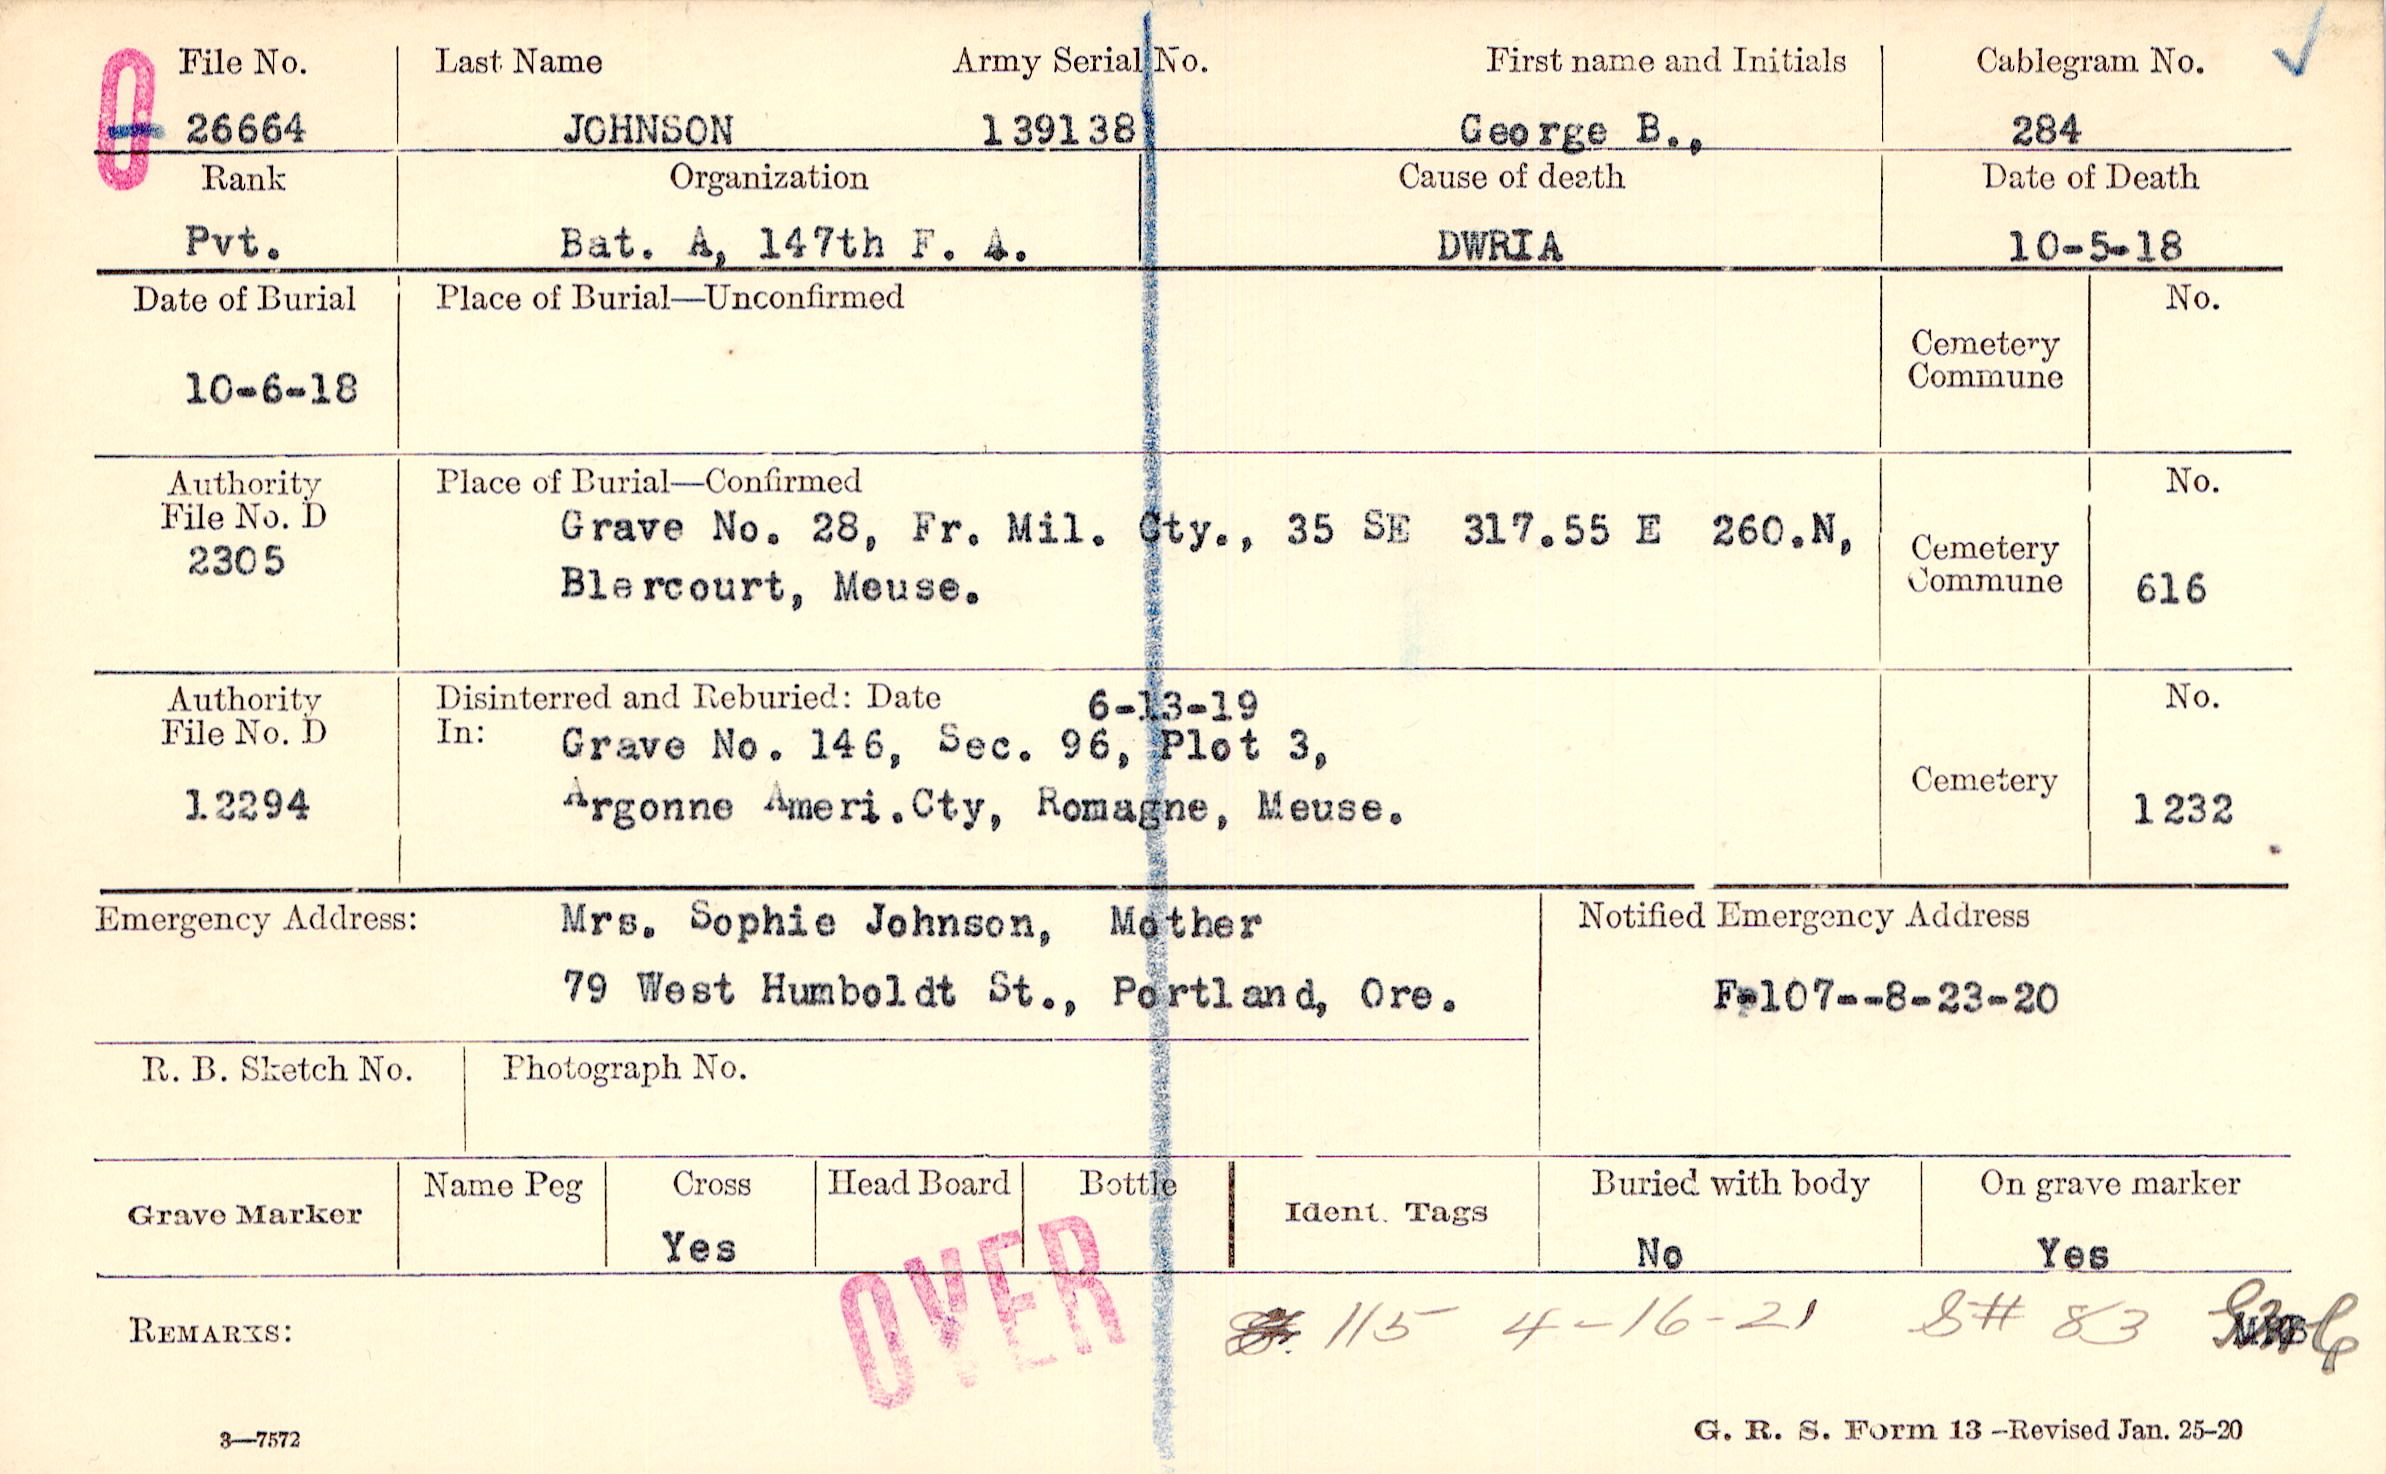 File No. Last Name Army Serial No. First name and Initials Cablegram No.
O 26664 JOHNSON 139138 George B., 284
Rank Organization Cause of death Date of Death
Pvt. Bat. A, 147th F. A. DWRIA 10-5-18
Date of Burial Place of Burial—Unconfirmed No.
10-6-18 Cemetery
Commune
Authority Place of Burial—Confirmed No.
File No. D Grave No. 28, Fr. Mil. Cty., 35 SE 317.55 E 260.N, Cemetery
2305 Blercourt, Meuse. Commune 616
Authority Disinterred and Reburied: Date 6-13-19 No.
File No. D In: Grave No. 146, Sec. 96, Plot 3, Cemetery
12294 Argonne Ameri.Cty, Romagne, Meuse. 1232
Emergency Address: Mrs. Sophie Johnson, Mother Notified Emergency Address
79 West Humboldt St., Portland, Ore. F-107--8-23-20
R. B. Sketch No. Photograph No.
Name Peg Cross Head Board Bottle Buried with body On grave marker
Grave Marker Ident. Tags
Yes No Yes
OVER
REMARKS: 115 4-16-21 S# 83
3—7572 G. R. S. Form 13 -Revised Jan. 25-20